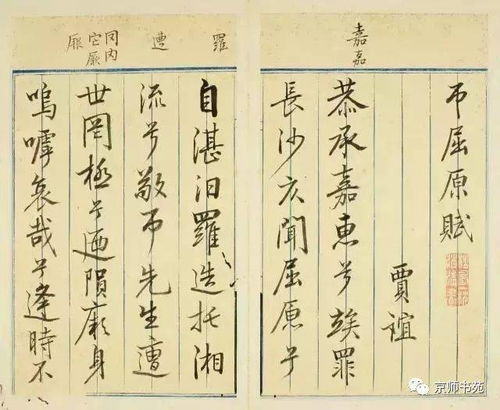 嘉
嘉
吊屈原賦
賈誼
恭承嘉惠兮竢罪
長沙仄聞屈原兮
羅
遭
自湛汨羅造托湘
流兮敬吊先生遭
世罔極兮迺隕厥身
嗚嘑哀哉兮逢時不
京师书苑